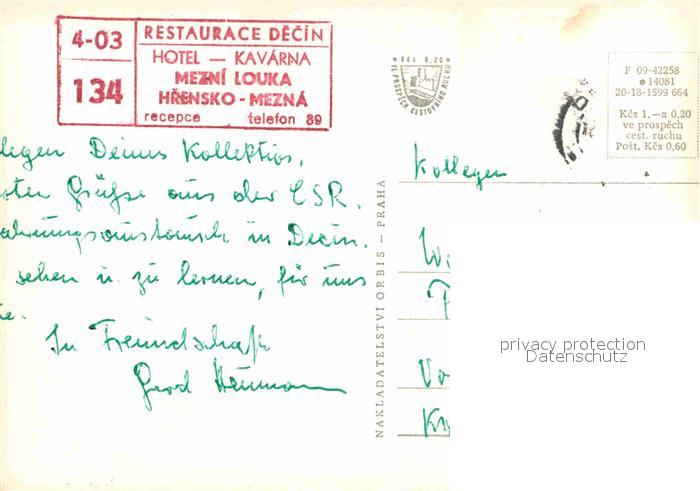 4-03
134
RESTAURACE DĚČÍN
HOTEL — KAVÁRNA
MEZNÍ LOUKA
HŘENSKO - MEZNÁ
recepce telefon 89
Kčs 0,20
VE PROSPĚCH CESTOVNÍHO RUCHU
F 09-42258
14081
20-18-1599 664
Kčs 1,— a 0,20
ve prospěch
cest. ruchu
Pošt. Kčs 0,60
legen Deines Kollektivs,
oten Grüße aus der ČSR.
ahrungsaustausch in Dečin.
sehen u. zu lernen, für uns
te.
In Freundschaft
Gerd
NAKLADATELSTVÍ ORBIS — PRAHA
Kollegen
W
F
Vo
K
privacy protection
Datenschutz